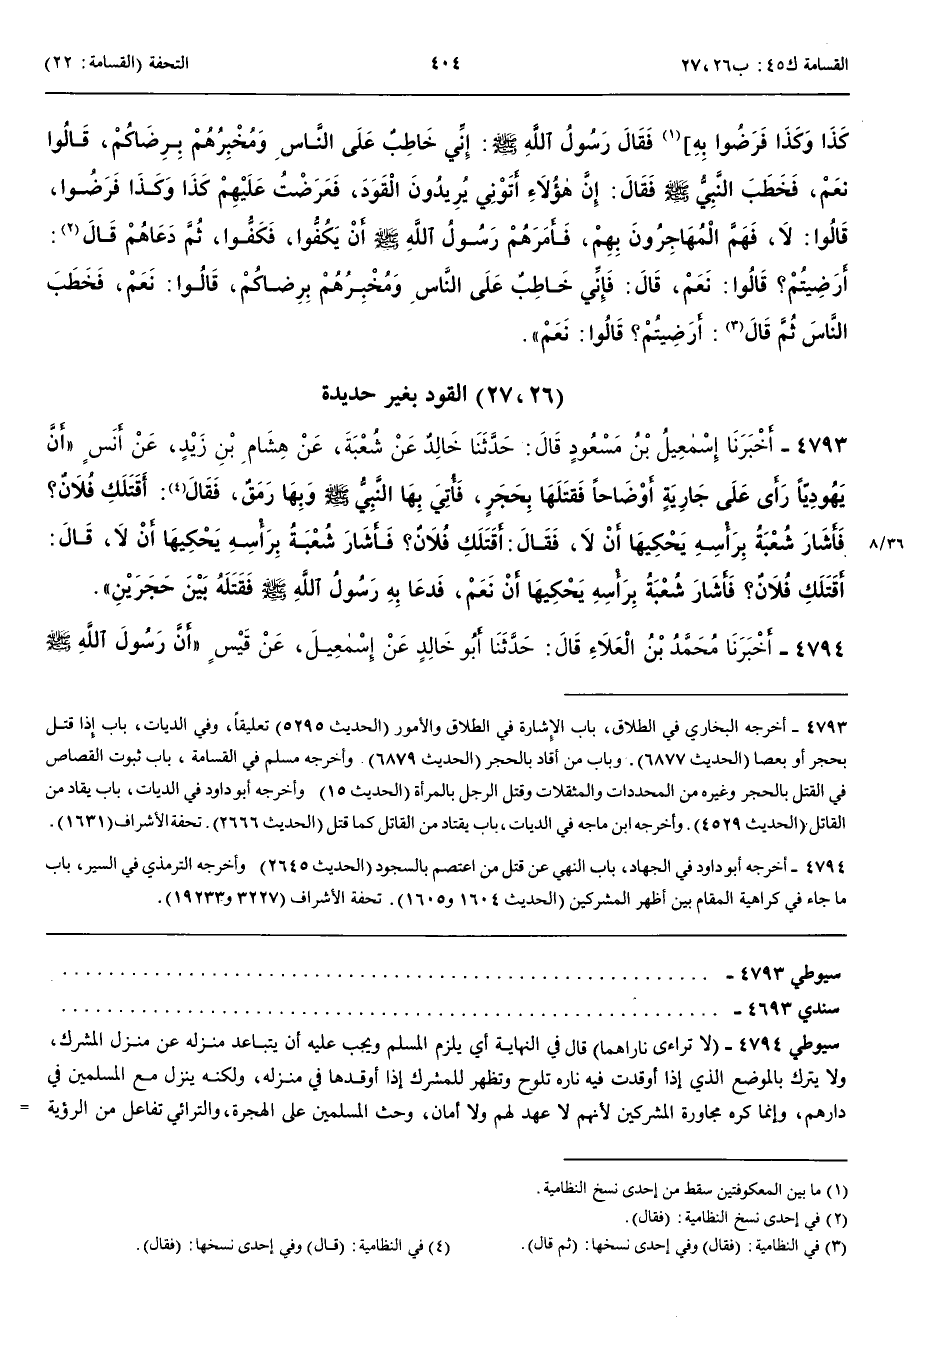 القسامة ك٤٥: ب٢٦، ٢٧ ٤٠٤ التحفة (القسامة: ٢٢)
كَذَا وَكَذَا فَرَضُوا بِهِ](١) فَقَالَ رَسُولُ ٱللَّهِ ﷺ: إِنِّي خَاطِبٌ عَلَى النَّاسِ وَمُخْبِرُهُمْ بِرِضَاكُمْ، قَالُوا
نَعَمْ، فَخَطَبَ النَّبِيُّ ﷺ فَقَالَ: إِنَّ هٰؤُلَاءِ أَتَوْنِي يُرِيدُونَ الْقَوَدَ، فَعَرَضْتُ عَلَيْهِمْ كَذَا وَكَذَا فَرَضُوا،
قَالُوا: لَا، فَهَمَّ الْمُهَاجِرُونَ بِهِمْ، فَأَمَرَهُمْ رَسُولُ ٱللَّهِ ﷺ أَنْ يَكُفُّوا، فَكَفُّوا، ثُمَّ دَعَاهُمْ قَالَ(٢):
أَرَضِيتُمْ؟ قَالُوا: نَعَمْ، قَالَ: فَإِنِّي خَاطِبٌ عَلَى النَّاسِ وَمُخْبِرُهُمْ بِرِضاكُمْ، قَالُوا: نَعَمْ، فَخَطَبَ
النَّاسَ ثُمَّ قَالَ(٣): أَرَضِيتُمْ؟ قَالُوا: نَعَمْ».
(٢٦، ٢٧) القود بغير حديدة
٤٧٩٣ ـ أَخْبَرَنَا إِسْمٰعِيلُ بْنُ مَسْعُودٍ قَالَ: حَدَّثَنَا خَالِدٌ عَنْ شُعْبَةَ، عَنْ هِشَامِ بْنِ زَيْدٍ، عَنْ أَنَسٍ «أَنَّ
يَهُودِيّاً رَأَى عَلَى جَارِيَةٍ أَوْضَاحاً فَقَتَلَهَا بِحَجَرٍ، فَأُتِيَ بِهَا النَّبِيُّ ﷺ وَبِهَا رَمَقٌ، فَقَالَ(٤): أَقَتَلَكِ فُلَانٌ؟
فَأَشَارَ شُعْبَةُ بِرَأْسِهِ يَحْكِيهَا أَنْ لَا، فَقَالَ: أَقَتَلَكِ فُلَانٌ؟ فَأَشَارَ شُعْبَةُ بِرَأْسِهِ يَحْكِيهَا أَنْ لَا، قَالَ: ٨/٣٦
أَقَتَلَكِ فُلَانٌ؟ فَأَشَارَ شُعْبَةُ بِرَأْسِهِ يَحْكِيهَا أَنْ نَعَمْ، فَدَعَا بِهِ رَسُولُ ٱللَّهِ ﷺ فَقَتَلَهُ بَيْنَ حَجَرَيْنِ».
٤٧٩٤ ـ أَخْبَرَنَا مُحَمَّدُ بْنُ الْعَلَاءِ قَالَ: حَدَّثَنَا أَبُو خَالِدٍ عَنْ إِسْمٰعِيلَ، عَنْ قَيْسٍ «أَنَّ رَسُولَ ٱللَّهِ ﷺ
٤٧٩٣ ـ أخرجه البخاري في الطلاق، باب الإشارة في الطلاق والأمور (الحديث ٥٢٩٥) تعليقاً، وفي الديات، باب إذا قتل
بحجر أو بعصا (الحديث ٦٨٧٧). وباب من أقاد بالحجر (الحديث ٦٨٧٩). وأخرجه مسلم في القسامة، باب ثبوت القصاص
في القتل بالحجر وغيره من المحددات والمثقلات وقتل الرجل بالمرأة (الحديث ١٥) وأخرجه أبو داود في الديات، باب يقاد من
القاتل (الحديث ٤٥٢٩). وأخرجه ابن ماجه في الديات، باب يقتاد من القاتل كما قتل (الحديث ٢٦٦٦). تحفة الأشراف (١٦٣١).
٤٧٩٤ ـ أخرجه أبو داود في الجهاد، باب النهي عن قتل من اعتصم بالسجود (الحديث ٢٦٤٥) وأخرجه الترمذي في السير، باب
ما جاء في كراهية المقام بين أظهر المشركين (الحديث ١٦٠٤ و١٦٠٥). تحفة الأشراف (٣٢٢٧ و١٩٢٣٣).
سيوطي ٤٧٩٣ ـ . . . . . . . . . . . . . . . . . . . .
سندي ٤٦٩٣ ـ . . . . . . . . . . . . . . . . . . . .
سيوطي ٤٧٩٤ ـ (لا تراءى ناراهما) قال في النهاية أي يلزم المسلم ويجب عليه أن يتباعد منزله عن منزل المشرك،
ولا يترك بالموضع الذي إذا أوقدت فيه ناره تلوح وتظهر للمشرك إذا أوقدها في منزله، ولكنه ينزل مع المسلمين في
دارهم، وإنما كره مجاورة المشركين لأنهم لا عهد لهم ولا أمان، وحث المسلمين على الهجرة، والترائي تفاعل من الرؤية =
(١) ما بين المعكوفتين سقط من إحدى نسخ النظامية.
(٢) في إحدى نسخ النظامية: (فقال).
(٣) في النظامية: (فقال) وفي إحدى نسخها: (ثم قال). (٤) في النظامية: (قال) وفي إحدى نسخها: (فقال).